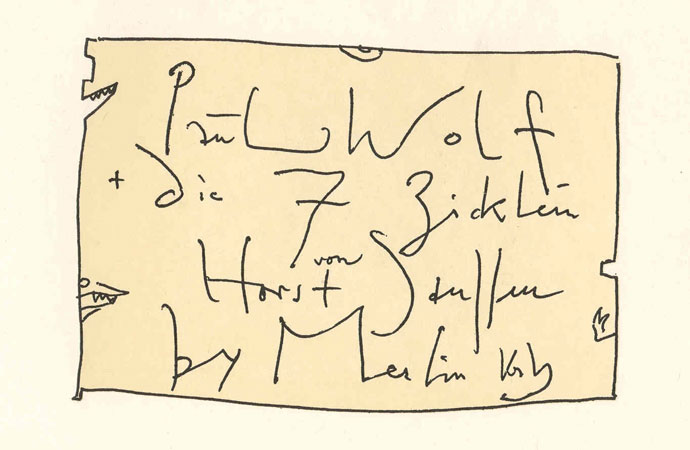 Paul Wolf
+ die 7 Zicklein
von
Horst Janssen
by Merlin